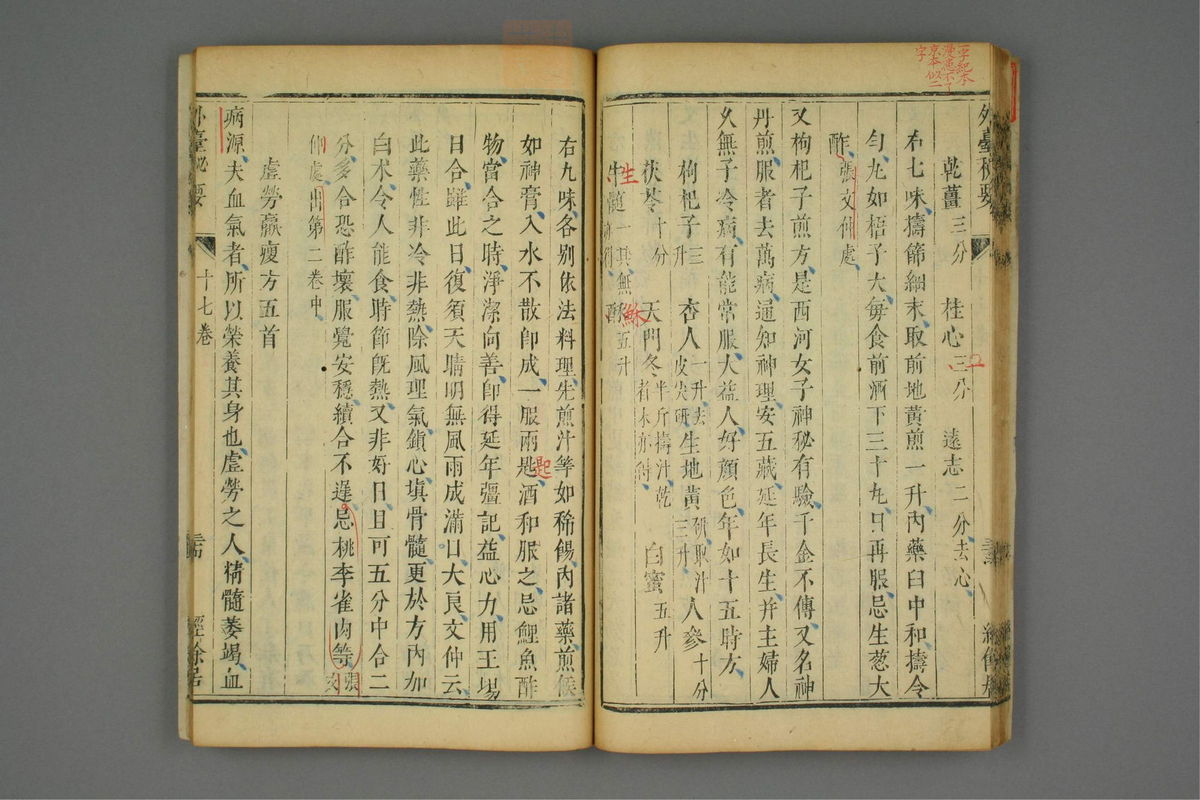 外臺秘要
乾薑三分　桂心三分　遠志二分去心
右七味擣篩細末取前地黃煎一升內藥臼中和擣令
勻丸如梧子大每食前酒下三十丸日再服忌生葱大
酢張文仲處
又枸杞子煎方是西河女子神秘有驗千金不傳又名神
丹煎服者去萬病通知神理安五藏延年長生并主婦人
久無子冷病有能常服大益人好顏色年如十五時方
枸杞子三升　杏人一升去皮尖研　生地黃研取汁三升　人參十分
茯苓十分　天門冬半斤擣汁乾者末亦得　白蜜五升
牛髓一具無亦得　酥五升
生
蘇
二
右九味各別依法料理先煎汁等如稀餳內諸藥煎候
如神膏入水不散即成一服兩匙酒和服之忌鯉魚酢
匙
物當合之時淨潔向善即得延年彊記益心力用王場
日合雖此日復須天晴明無風雨成滿日大良文仲云
此藥性非冷非熱除風理氣鎮心填骨髓更於方內加
白朮令人能食時節既熱又非好日且可五分中合二
分多合恐酢壞服覺安穩續合不遲忌桃李雀肉等張文
仲處出第二卷中
虛勞羸瘦方五首
病源夫血氣者所以榮養其身也虛勞之人精髓萎竭血
外臺秘要　十七卷　經餘居